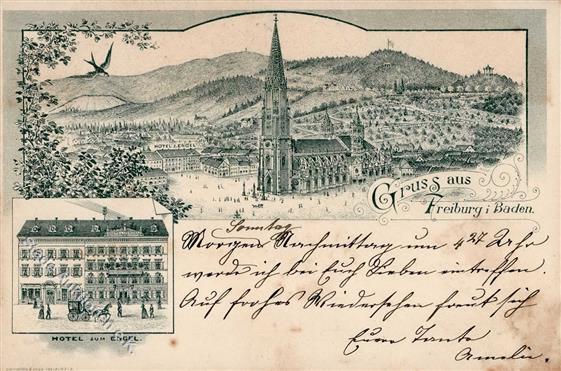 HOTEL z. ENGEL
Gruss aus
Freiburg i Baden.
Sonntag
Morgen Nachmittag um 4 27 Uhr
werde ich bei Euch Lieben eintreffen.
Auf frohes Wiedersehen freut sich
Eure Tante
Amelie.
HOTEL ZUM ENGEL.